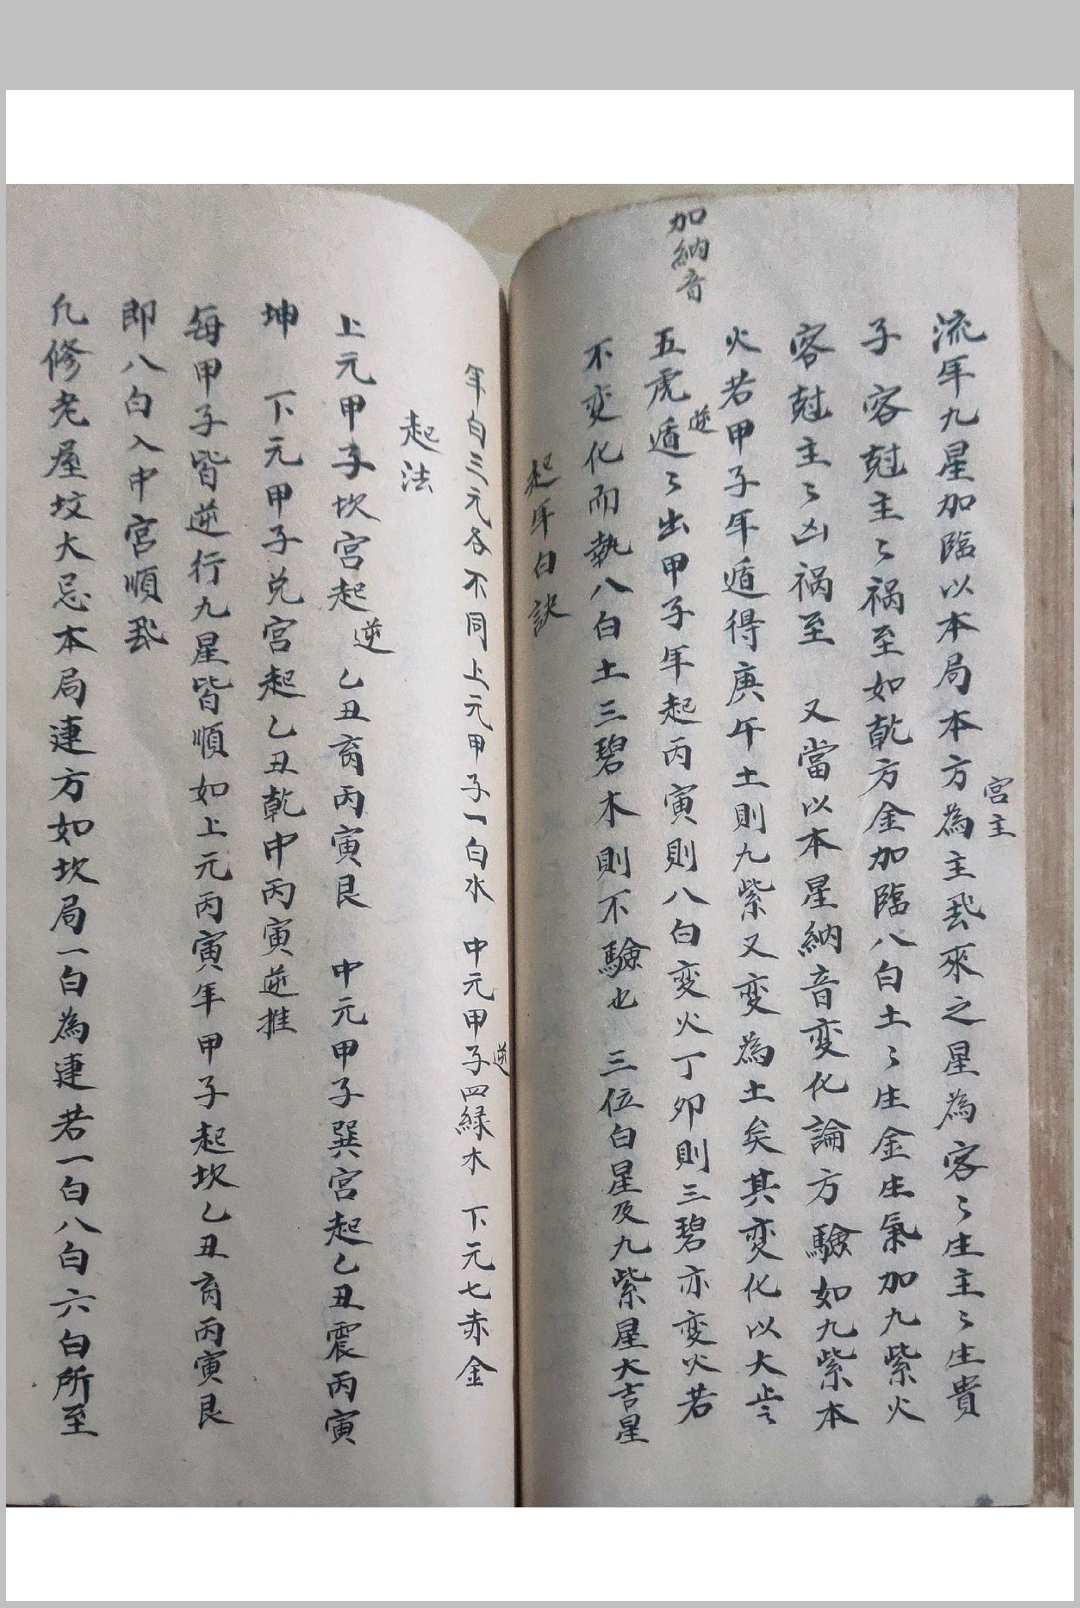 加納音
流年九星加臨以本局本方為主飛來之星為客〻生主〻生貴
宮主
子客尅主〻禍至如乾方金加臨八白土〻生金生氣加九紫火
客尅主〻凶禍至 又當以本星納音变化論方驗如九紫本
火若甲子年遁得庚午土則九紫又变為土矣其变化以大
五虎遁〻出甲子年起丙寅則八白变火丁夘則三碧亦变火若
逆
不变化而執八白土三碧木則不驗也 三位白星及九紫星大吉星
起年白訣
年白三元各不同上元甲子一白水 中元甲子四綠木 下元七赤金
逆
起法
上元甲子坎宮起 乙丑离丙寅艮 中元甲子巽宮起乙丑震丙寅
逆
坤 下元甲子兑宮起乙丑乾中丙寅逆推
每甲子皆逆行九星皆順如上元丙寅年甲子起坎乙丑离丙寅艮
即八白入中宮順飛
凢修老屋坟大忌本局連方如坎局一白為連若一白八白六白所至